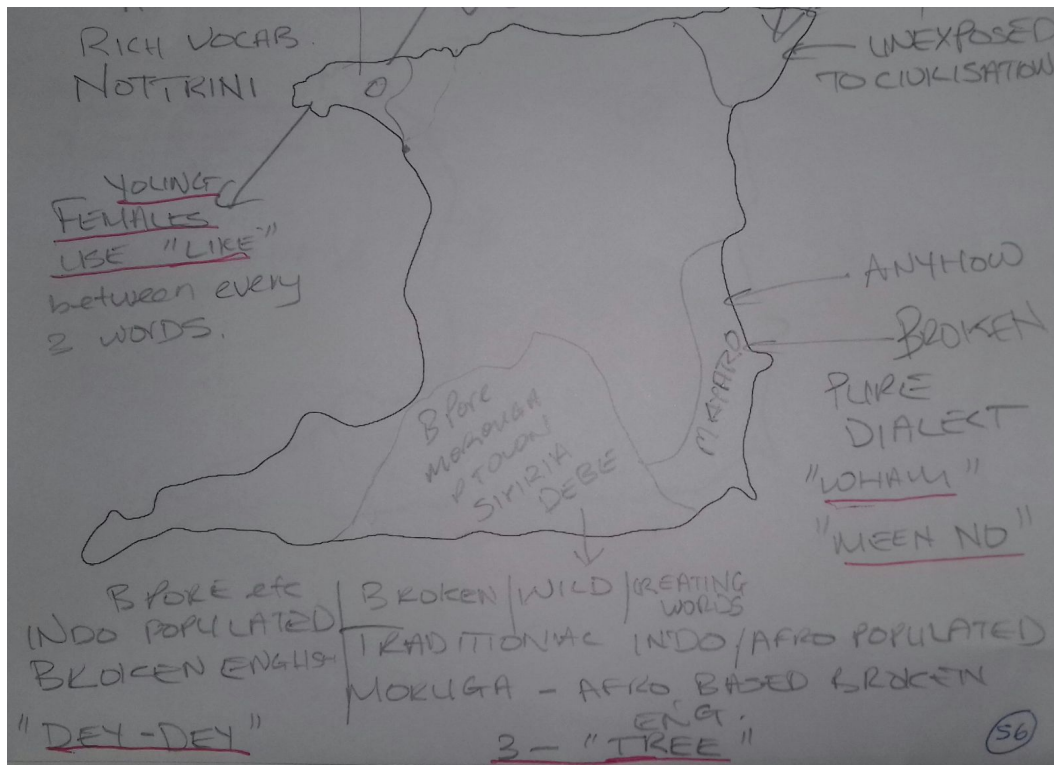 RICH VOCAB.
NOT TRINI
UNEXPOSED
TO CIVILISATION
YOUNG
FEMALES
USE "LIKE"
between every
2 WORDS.
ANYHOW
BROKEN
PURE
DIALECT
"WHAM"
"MEEN NO"
MAYARO
B Pore
MOROUGA
P TOWN
SIPIRIA
DEBE
B PORE etc
INDO POPULATED
BROKEN ENGLISH
"DEY-DEY"
BROKEN / WILD / CREATING
WORDS
TRADITIONAL INDO / AFRO POPULATED
MORUGA - AFRO BASED BROKEN
ENG.
3 - "TREE"
56